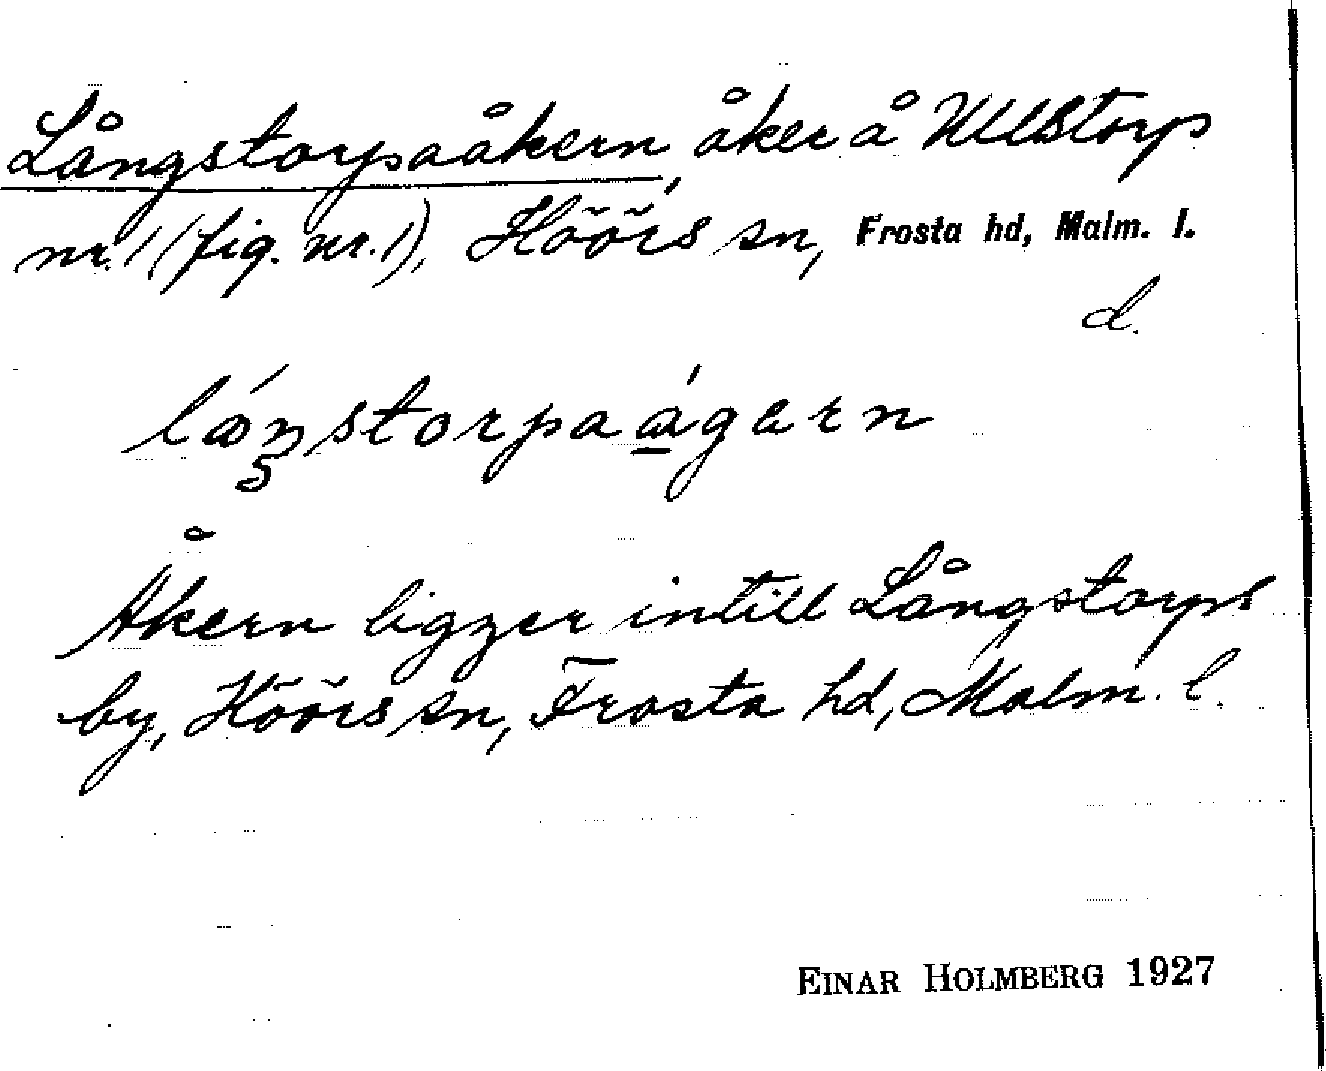 Långstorpaåkern, åker å Ullstorp
nr. 1 (fig. nr. 1), Höörs sn, Frosta hd, Malm. l.
d.
Åkern ligger intill Långstorps
by, Höörs sn, Frosta hd, Malm. l.
EINAR HOLMBERG 1927